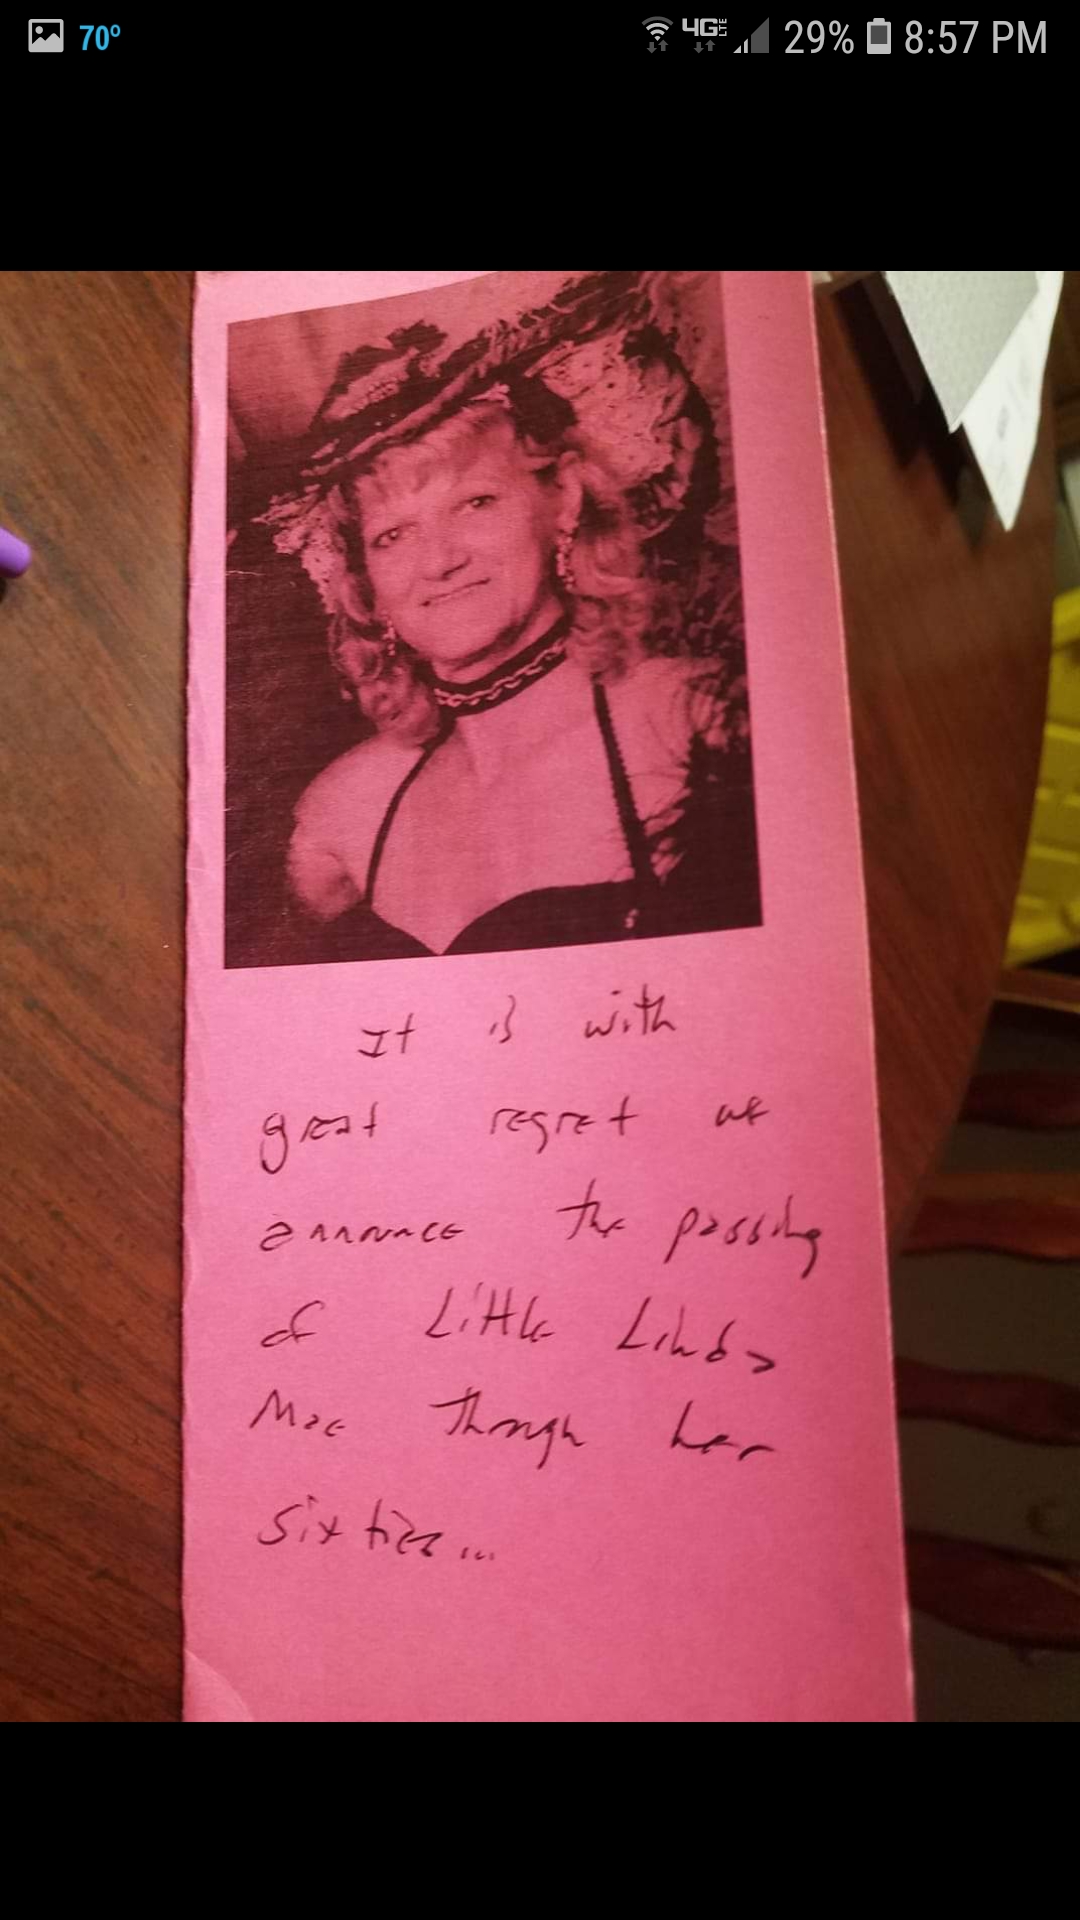 70°
4G LTE 29% 8:57 PM
It is with
great regret we
announce the passing
of Little Linda
Mae through her
sixties...